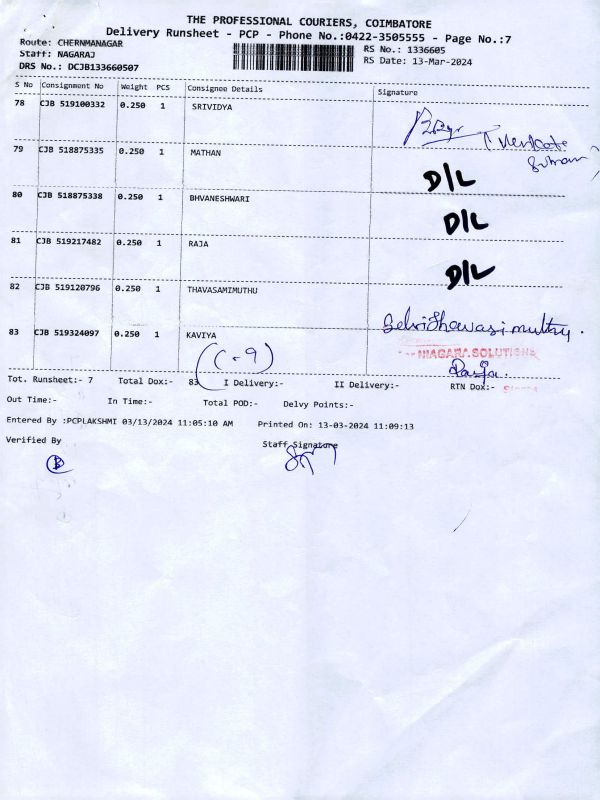 THE PROFESSIONAL COURIERS, COIMBATORE
Delivery Runsheet - PCP - Phone No.:0422-3505555 - Page No.:7
Route: CHERNMANAGAR RS No.: 1336605
Staff: NAGARAJ RS Date: 13-Mar-2024
DRS No.: DCJB133660507
S No Consignment No Weight PCS Consignee Details Signature
78 CJB 519100332 0.250 1 SRIVIDYA
79 CJB 518875335 0.250 1 MATHAN D/L
80 CJB 518875338 0.250 1 BHVANESHWARI D/L
81 CJB 519217482 0.250 1 RAJA D/L
82 CJB 519120796 0.250 1 THAVASAMIMUTHU
83 CJB 519324097 0.250 1 KAVIYA NIAGARA SOLUTIONS
(C-9)
Tot. Runsheet:- 7 Total Dox:- 83 I Delivery:- II Delivery:- RTN Dox:-
Out Time:- In Time:- Total POD:- Delvy Points:-
Entered By :PCPLAKSHMI 03/13/2024 11:05:10 AM Printed On: 13-03-2024 11:09:13
Verified By Staff Signature